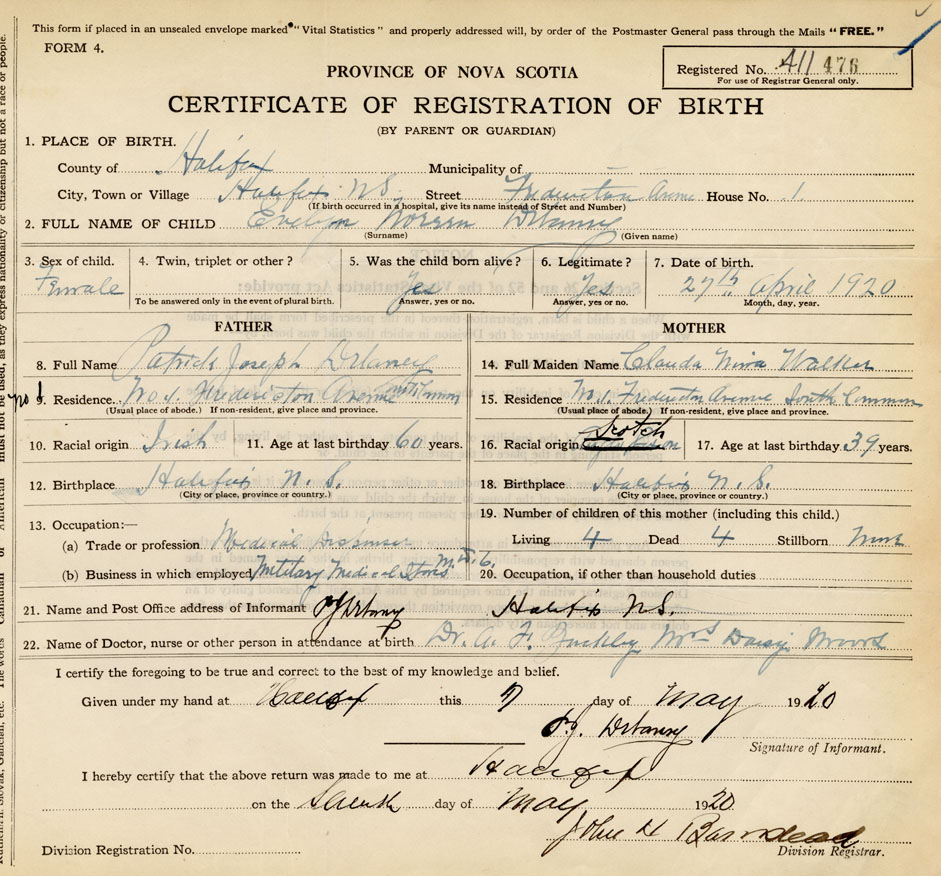 This form if placed in an unsealed envelope marked "Vital Statistics" and properly addressed will, by order of the Postmaster General pass through the Mails "FREE."
FORM 4.
Registered No. 411 476
For use of Registrar General only.
PROVINCE OF NOVA SCOTIA
CERTIFICATE OF REGISTRATION OF BIRTH
(BY PARENT OR GUARDIAN)
1. PLACE OF BIRTH.
County of Halifax Municipality of
City, Town or Village Halifax N.S. Street Fredericton Avenue House No. 1.
(If birth occurred in a hospital, give its name instead of Street and Number)
2. FULL NAME OF CHILD Evelyn Noreen Delaney
(Surname) (Given name)
3. Sex of child. Female
4. Twin, triplet or other?
To be answered only in the event of plural birth.
5. Was the child born alive? Yes
Answer, yes or no.
6. Legitimate? Yes
Answer, yes or no.
7. Date of birth. 27th April 1920
Month, day, year.
FATHER
8. Full Name Patrick Joseph Delaney
9. Residence No 1. Fredericton Avenue South Common
No 1
(Usual place of abode.) If non-resident, give place and province.
10. Racial origin Irish 11. Age at last birthday 60 years.
12. Birthplace Halifax N.S.
(City or place, province or country.)
13. Occupation:—
(a) Trade or profession Medical Dispenser
(b) Business in which employed Military Medical Stores M.D. 6.
MOTHER
14. Full Maiden Name Clauda Nina Walker
15. Residence No 1. Fredericton Avenue South Common
(Usual place of abode.) If non-resident, give place and province.
16. Racial origin Scotch 17. Age at last birthday 39 years.
18. Birthplace Halifax N.S.
(City or place, province or country.)
19. Number of children of this mother (including this child.)
Living 4 Dead 4 Stillborn None
20. Occupation, if other than household duties
21. Name and Post Office address of Informant P J Delaney Halifax N.S.
22. Name of Doctor, nurse or other person in attendance at birth Dr. A. F. Mrs Daisy Moors
I certify the foregoing to be true and correct to the best of my knowledge and belief.
Given under my hand at Halifax this 7 day of May 1920
P.J. Delaney
Signature of Informant.
I hereby certify that the above return was made to me at Halifax
on the Seventh day of May 1920
John H Barnstead
Division Registrar.
Division Registration No.